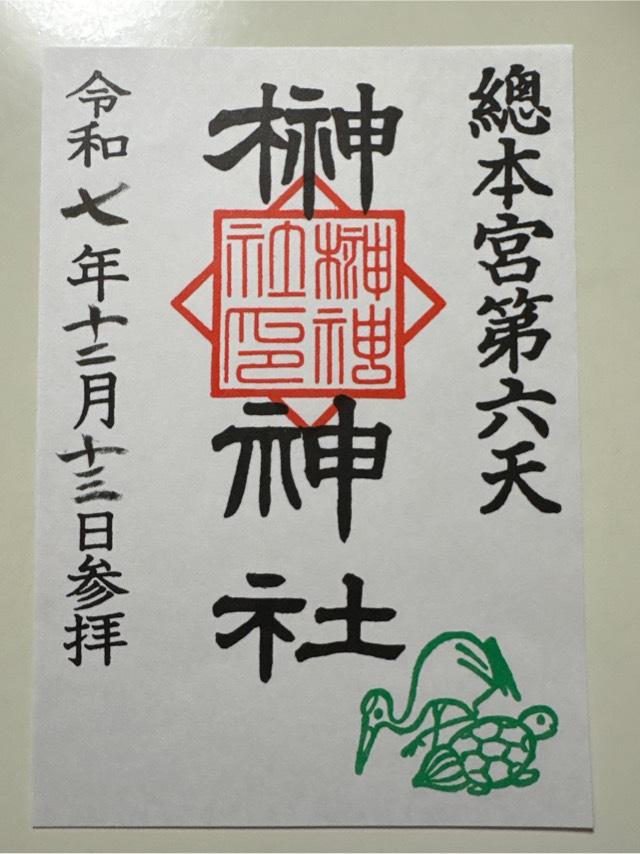 總本宮第六天
榊神社
榊神
社印
令和七年十二月十三日参拝